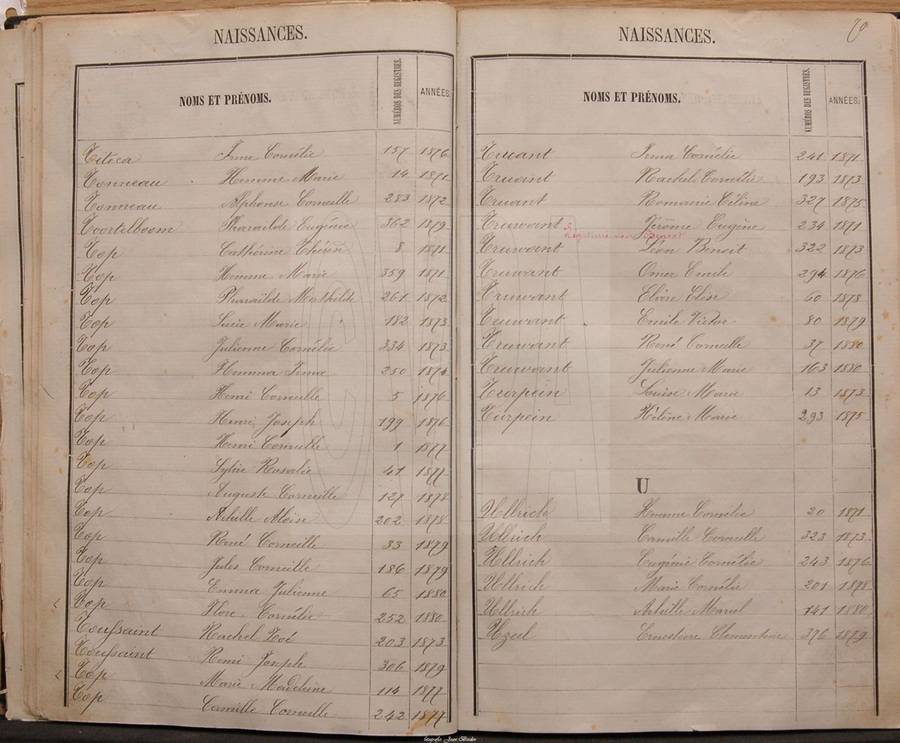 NAISSANCES.
NOMS ET PRÉNOMS. NUMÉROS DES REGISTRES. ANNÉES
Titeca Irma Cornélie 157 1876
Tonneau Hemma Marie 14 1871
Tonneau Alphonse Corneille 253 1872
Toortelboom Pharaïlde Eugénie 362 1879
Top Cathérine Thérèse 8 1871
Top Hemma Marie 359 1871
Top Pharaïlde Mathilde 261 1872
Top Lucie Marie 182 1873
Top Julienne Cornélie 334 1873
Top Hemma Irma 250 1874
Top Henri Corneille 5 1876
Top Henri Joseph 199 1876
Top Henri Corneille 1 1877
Top Sylvie Rosalie 41 1877
Top Auguste Corneille 127 1878
Top Achille Aloïse 202 1878
Top René Corneille 33 1879
Top Jules Corneille 186 1879
Top Emma Julienne 65 1880
Top Flore Cornélie 252 1880
Toussaint Rachel Noé 203 1873
Toussaint Remi Joseph 306 1879
Top Marie Madeleine 114 1877
Top Camille Corneille 242 1877
70
NAISSANCES.
NOMS ET PRÉNOMS. NUMÉROS DES REGISTRES. ANNÉES
Truant Irma Cornélie 241 1871
Truant Rachel Cornélie 193 1873
Truant Romanie Céline 327 1875
Truwant Jérôme Eugène 234 1871
Truwant Léon Benoit 322 1873
Truwant Omer Emile 294 1876
Truwant Elvire Elise 60 1878
Truwant Emile Victor 80 1879
Truwant René Corneille 37 1880
Truwant Julienne Marie 163 1880
Turpein Louise Marie 13 1873
Turpein Hélène Marie 293 1875
U
Ullrich Hemma Cornélie 20 1871
Ullrich Camille Corneille 323 1873
Ullrich Eugénie Cornélie 243 1876
Ullrich Marie Cornélie 201 1878
Ullrich Achille Marcel 141 1880
Uzeel Ernestine Clementine 376 1879